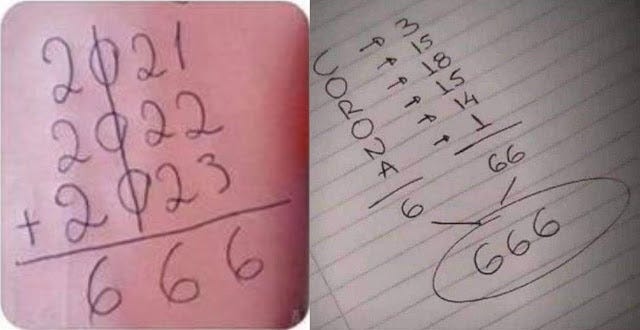 2021
2022
+ 2023
666
C → 3
O → 15
R → 18
O → 15
N → 14
A → 1
6 66
666